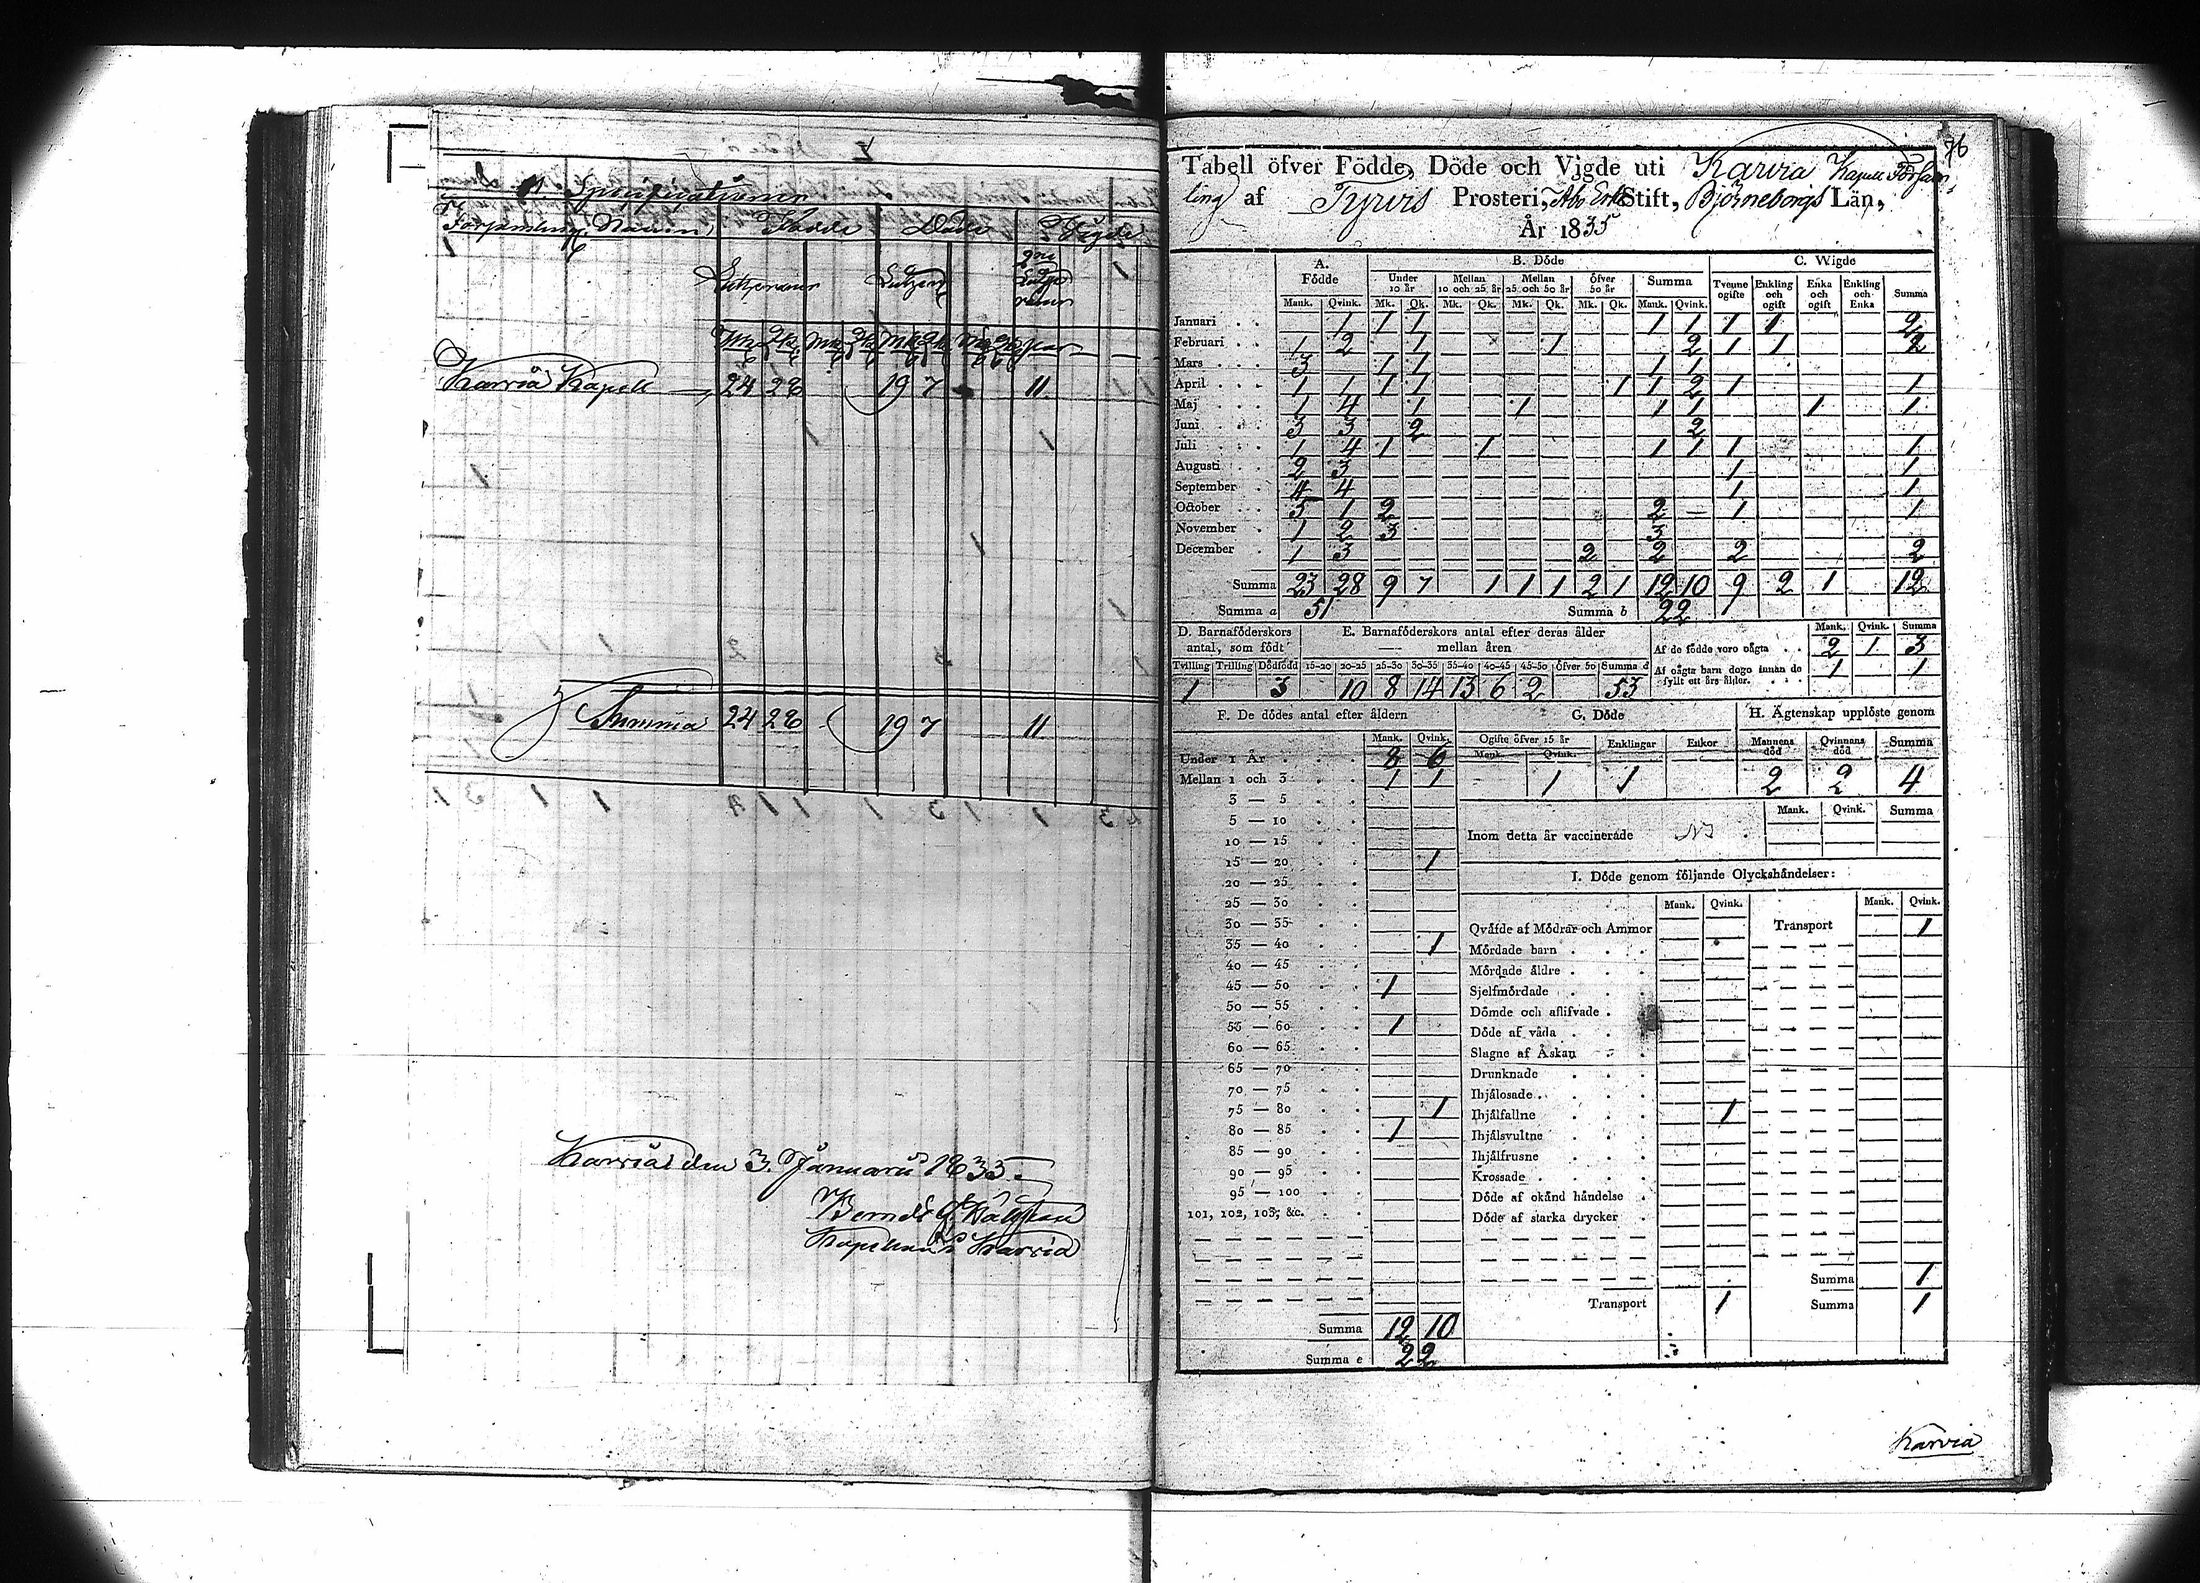 Specificationer
Församlingens Namn, Födde Döde Vigde
Karvia Kapell 24 28 19 7 11
Summa 24 28 19 7 11
Karvia den 3 Januarii 1835.
Kapellan i Karvia
76
Tabell öfver Födde, Döde och Vigde uti Karvia Kapell Församling
af Tyrvis Prosteri, Åbo Erke Stift, Björneborgs Län,
År 1835
A. Födde B. Döde C. Wigde
Under 10 år Mellan 10 och 25 år Mellan 25 och 50 år Öfver 50 år Summa Tvenne ogifte Enkling och ogift Enka och ogift Enkling och Enka Summa
Mank. Qvink. Mk. Qk. Mk. Qk. Mk. Qk. Mk. Qk. Mank. Qvink.
Januari 1 1 1 1 1 1 1 2
Februari 1 2 1 1 2 1 1 2
Mars 3 1 1 1 1
April 1 1 1 1 1 1 2 1 1
Maj 1 4 1 1 1 1 1 1
Juni 3 3 2 2
Juli 1 4 1 1 1 1 1 1
Augusti 2 3 1 1
September 4 4 1 1
October 5 1 2 2 1 1
November 1 2 3 3
December 1 3 2 2 2 2
Summa 23 28 9 7 1 1 1 2 1 12 10 9 2 1 12
Summa a 51 Summa b 22
D. Barnaföderskors antal, som födt
Tvilling Trilling Dödfödd
1 3
E. Barnaföderskors antal efter deras ålder mellan åren
15-20 20-25 25-30 30-35 35-40 40-45 45-50 öfver 50 Summa d
10 8 14 13 6 2 53
Mank. Qvink. Summa
Af de födde voro oägta 2 1 3
Af oägta barn dogo innan de fyllt ett års ålder. 1 1
F. De dödes antal efter åldern
Mank. Qvink.
Under 1 År 8 6
Mellan 1 och 3 1 1
3 — 5
5 — 10
10 — 15
15 — 20 1
20 — 25
25 — 30
30 — 35
35 — 40 1
40 — 45
45 — 50 1
50 — 55
55 — 60 1
60 — 65
65 — 70
70 — 75
75 — 80 1
80 — 85 1
85 — 90
90 — 95
95 — 100
101, 102, 103, &c.
Summa 12 10
Summa e 22
G. Döde
Ogifte öfver 15 år Enklingar Enkor
Mank. Qvink.
1 1
H. Ägtenskap upplöste genom
Mannens död Qvinnans död Summa
2 2 4
Mank. Qvink. Summa
Inom detta år vaccinerade
I. Döde genom följande Olyckshändelser:
Mank. Qvink. Mank. Qvink.
Qväfde af Mödrar och Ammor Transport 1
Mördade barn
Mördade äldre
Sjelfmördade
Dömde och aflifvade
Döde af våda
Slagne af Åskan
Drunknade
Ihjälosade
Ihjälfallne 1
Ihjälsvultne
Ihjälfrusne
Krossade
Döde af okänd händelse
Döde af starka drycker
Summa 1
Transport 1 Summa 1
Karvia